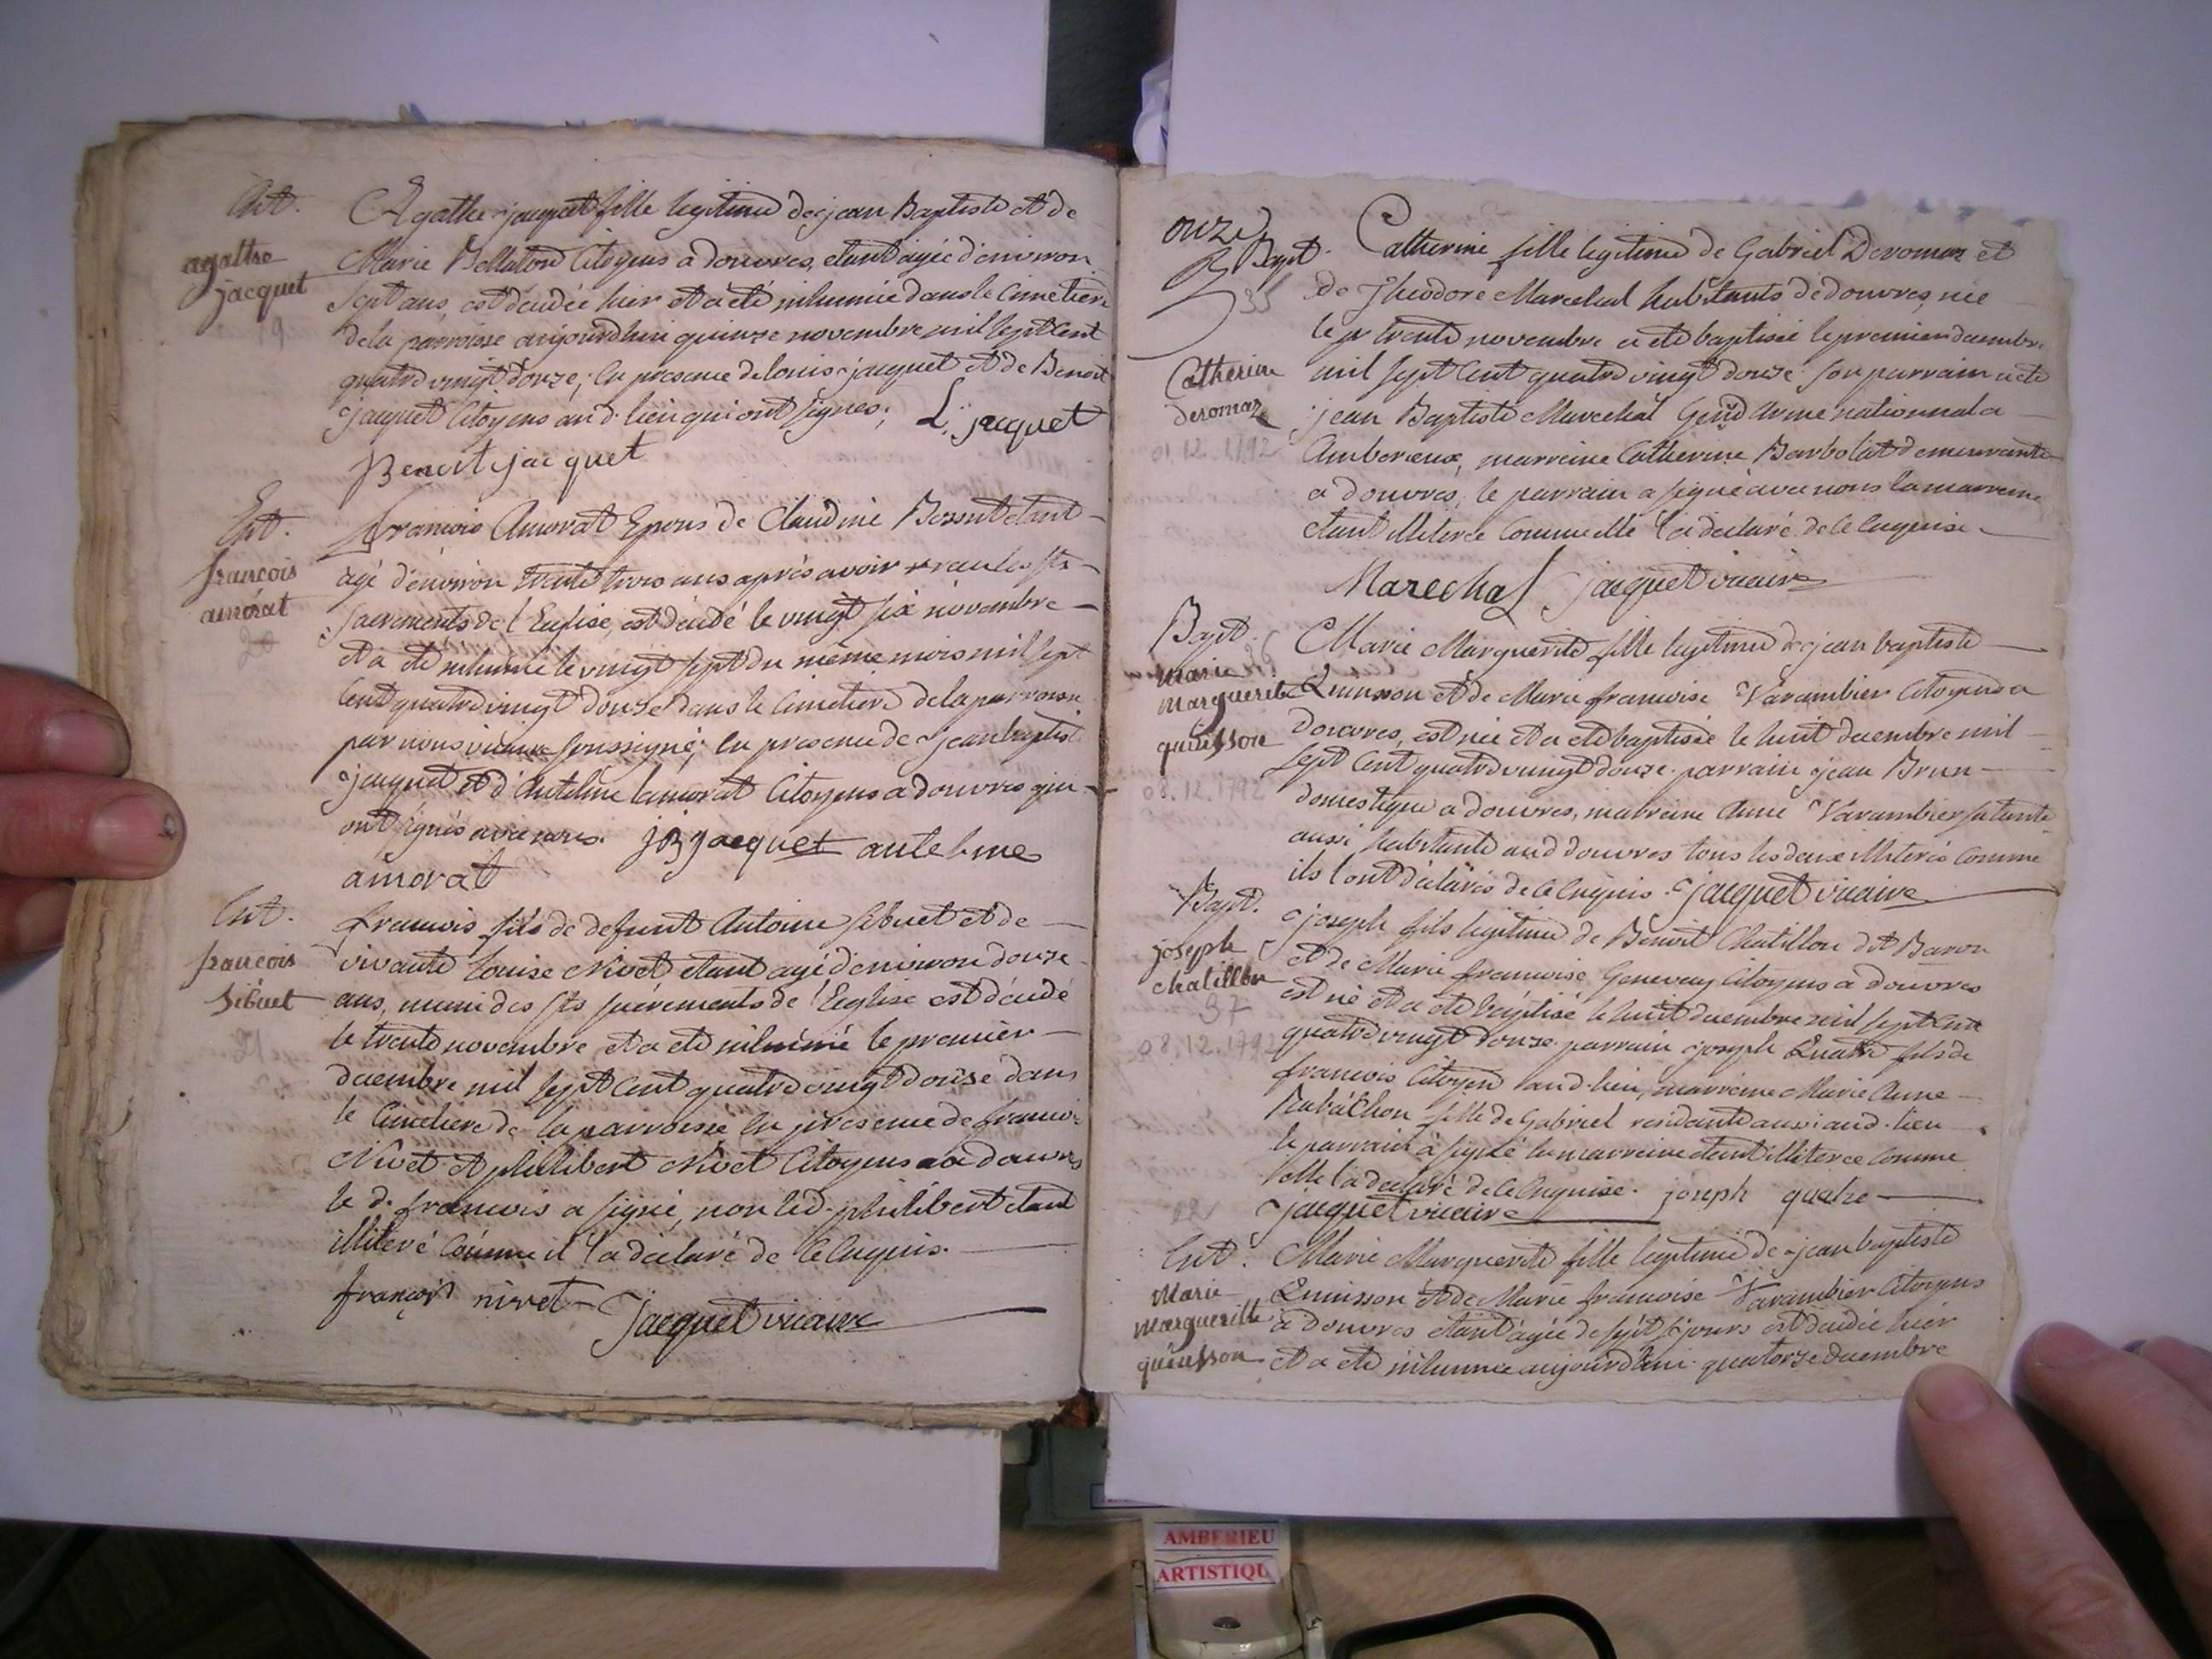 Ent.
agathe
jacquet
19
Agathe jacquet fille legitime de jean Baptiste et de
Marie Bellaton Citoyens a douvres, etant agée d'environ
Sept ans, est décédée hier et a eté inhumée dans le Cimetiere
de la parroisse aujourdhui quinze novembre mil sept Cent
quatre vingt douze; en presence de louis jacquet et de Benoit
jacquet Citoyens aud. lieu qui ont signés; L. jacquet
Benoit jacquet
Ent.
francois
amorat
20
francois Amorat Epous de Claudine Bossut etant
agé d'environ trente trois ans après avoir recu les sts
sacrements de l'Eglise, est décédé le vingt six novembre
et a eté inhumé le vingt sept du même mois mil sept
Cent quatre vingt douze dans le Cimetiere de la parroisse
par nous vicaire soussigné; en presence de jean baptiste
jacquet et d'Antelme lamorat Citoyens a douvres qui
ont signés avec nous. jB jacquet antelme
amorat
Ent.
francois
sibuet
21
francois fils de defunt Antoine sibuet et de
vivante louise Nivet, etant agé d'environ douze
ans, muni des sts sacrements de l'Eglise est décédé
le trente novembre et a eté inhumé le premier
decembre mil sept Cent quatre vingt douze dans
le Cimetiere de la parroisse en presence de francois
Nivet et philibert Nivet Citoyens a douvres
le d. francois a signé, non led. philibert etant
illiteré Comme il l'a déclaré de Ce Enquis.
françois nivet jacquet vicaire
onze
Bapt.
35
Catherine
deromaz
01.12.1792
Catherine fille legitime de Gabriel Deromaz et
de Theodore Marechal habitants de douvres, née
le trente novembre a eté baptisée le premier decembre
mil sept Cent quatre vingt douze son parrain a eté
jean Baptiste Marechal Gend'Arme nationnal a
Amberieux, marreine Catherine Barbolat demeurante
a douvres, le parrain a signé avec nous la marreine
etant illiterée Comme elle l'a declaré de Ce Enquise
Marechal jacquet vicaire
Bapt.
36
marie
marguerite
quinsson
08.12.1792
Marie Marguerite fille legitime de jean baptiste
Quinsson et de Marie francoise Varambier Citoyens a
Douvres, est née et a eté baptisée le huit decembre mil
sept Cent quatre vingt douze. parrain jean Brun
domestique a douvres, marreine Anne Varambier sa tante
aussi habitante aud douvres tous les deux illiterés Comme
ils l'ont déclarés de Ce Enquis. jacquet vicaire
Bapt.
joseph
chatillon
37
08.12.1792
joseph fils legitime de Benoit Chatillon dit Baron
et de Marie francoise Genevay Citoyens a douvres
est né et a eté baptisé le huit decembre mil sept Cent
quatre vingt douze. parrain joseph Quatre fils de
francois Citoyen aud. lieu, marreine Marie Anne
fille de Gabriel residante aussi aud. lieu
le parrain à signé la marreine etant illiterée Comme
elle l'a declaré de Ce Enquise. joseph quatre
jacquet vicaire
22
Ent.
Marie
margueritte
quinsson
Marie Marguerite fille legitime de jean baptiste
Quinsson et de Marie francoise Varambier Citoyens
à Douvres etant agée de sept jours est décédée hier
et a eté inhumée aujourdhui quatorze decembre
AMBERIEU
ARTISTIQU